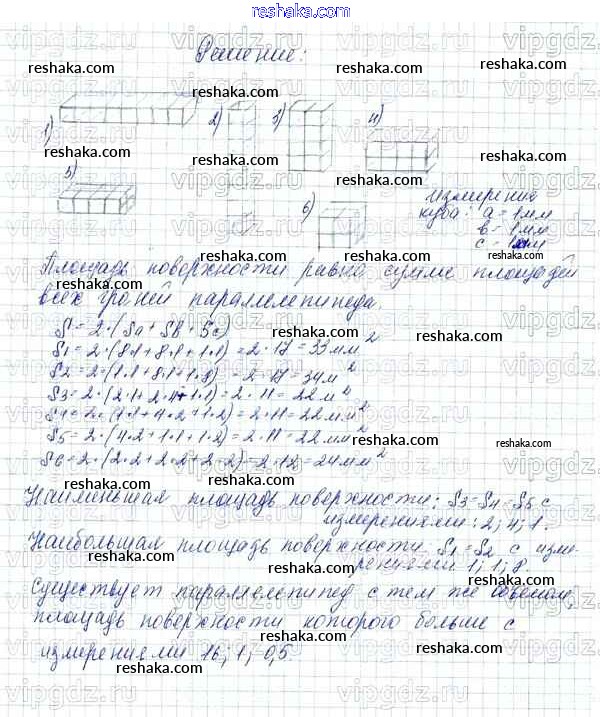 reshaka.com
Решение:
1)
2)
3)
4)
5)
6)
измерение
куба: a = 1 мм
в = 1 мм
с = 1 мм
Площадь поверхности равна сумме площадей
всех граней параллелепипеда.
S = 2·(Sa + Sb + Sc)
S1 = 2·(8·1+8·1+1·1) = 2·17 = 33 мм²
S2 = 2·(1·1+8·1+1·8) = 2·17 = 34 мм²
S3 = 2·(2·1+2·4+1·1) = 2·11 = 22 мм²
S4 = 2·(4·1+4·2+1·2) = 2·11 = 22 мм²
S5 = 2·(4·2+1·1+1·2) = 2·11 = 22 мм²
S6 = 2·(2·2+2·2+2·2) = 2·12 = 24 мм²
Наименьшая площадь поверхности: S3=S4=S5 с
измерениями: 2; 4; 1.
Наибольшая площадь поверхности S1=S2 с изме-
рениями 1; 1; 8
Существует параллелепипед с тем же объемом,
площадь поверхности которого больше с
измерениями 16; 1; 0,5.